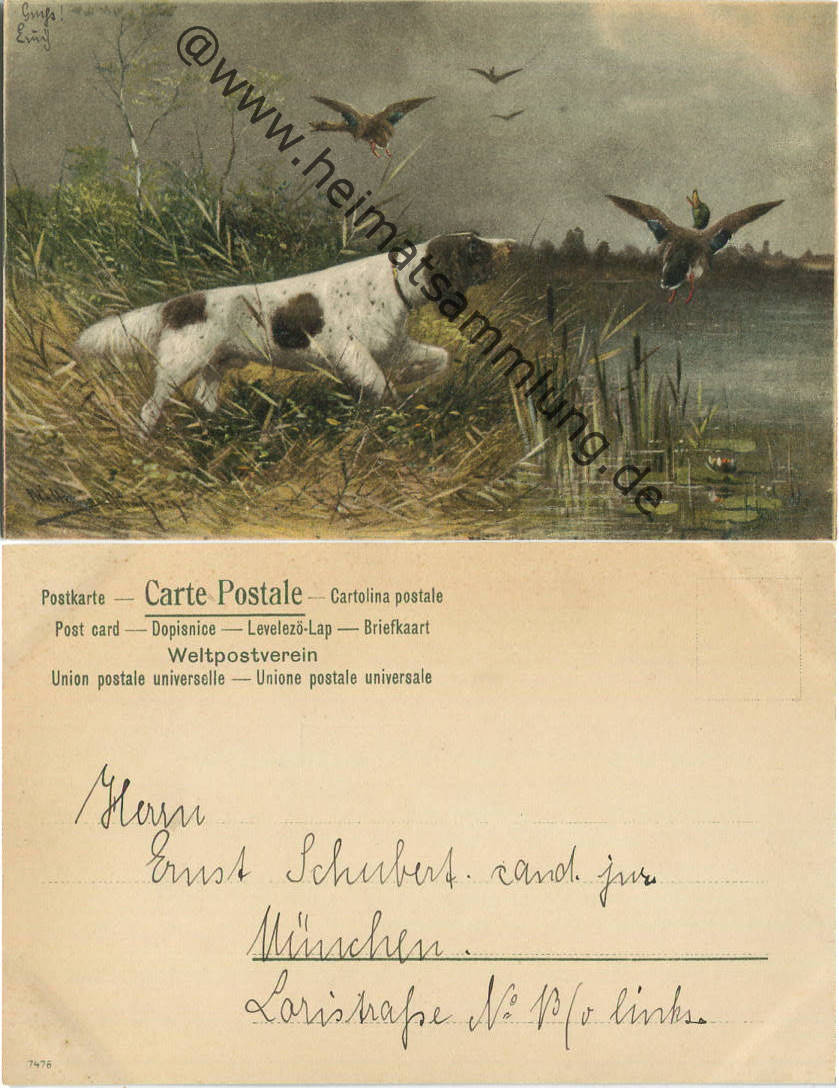 Gruß!
@www.heimatsammlung.de
Postkarte — Carte Postale — Cartolina postale
Post card — Dopisnice — Levelezö-Lap — Briefkaart
Weltpostverein
Union postale universelle — Unione postale universale
Herrn
Ernst Schubert. cand. jur.
München.
Loristraße No 13/0 links.
7476